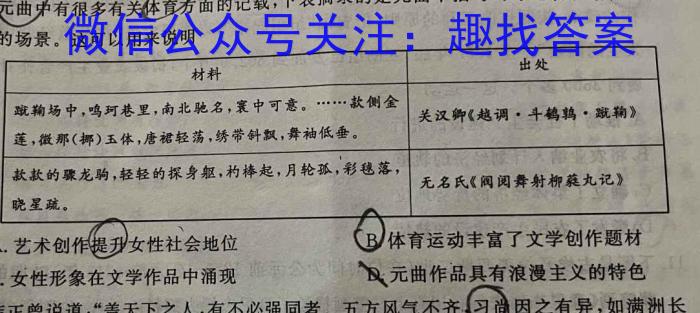 元曲中有很多有关体育方面的记载,下表摘录的是元曲中
的场景。这可以用来说明
微信公众号关注：趣找答案
材料
出处
蹴鞠场中,鸣珂巷里,南北驰名,寰中可意。……款侧金
莲,微那(挪)玉体,唐裙轻荡,绣带斜飘,舞袖低垂。
关汉卿《越调·斗鹌鹑·蹴鞠》
款款的骤龙驹,轻轻的探身躯,杓棒起,月轮孤,彩毬落,
晓星疏。
无名氏《阀阅舞射柳蕤丸记》
A. 艺术创作提升女性社会地位
B. 体育运动丰富了文学创作题材
. 女性形象在文学作品中涌现
D. 元曲作品具有浪漫主义的特色
正曾说道,“盖天下之人,有不必强同者 五方风气不齐,习尚因之有异,如满洲长